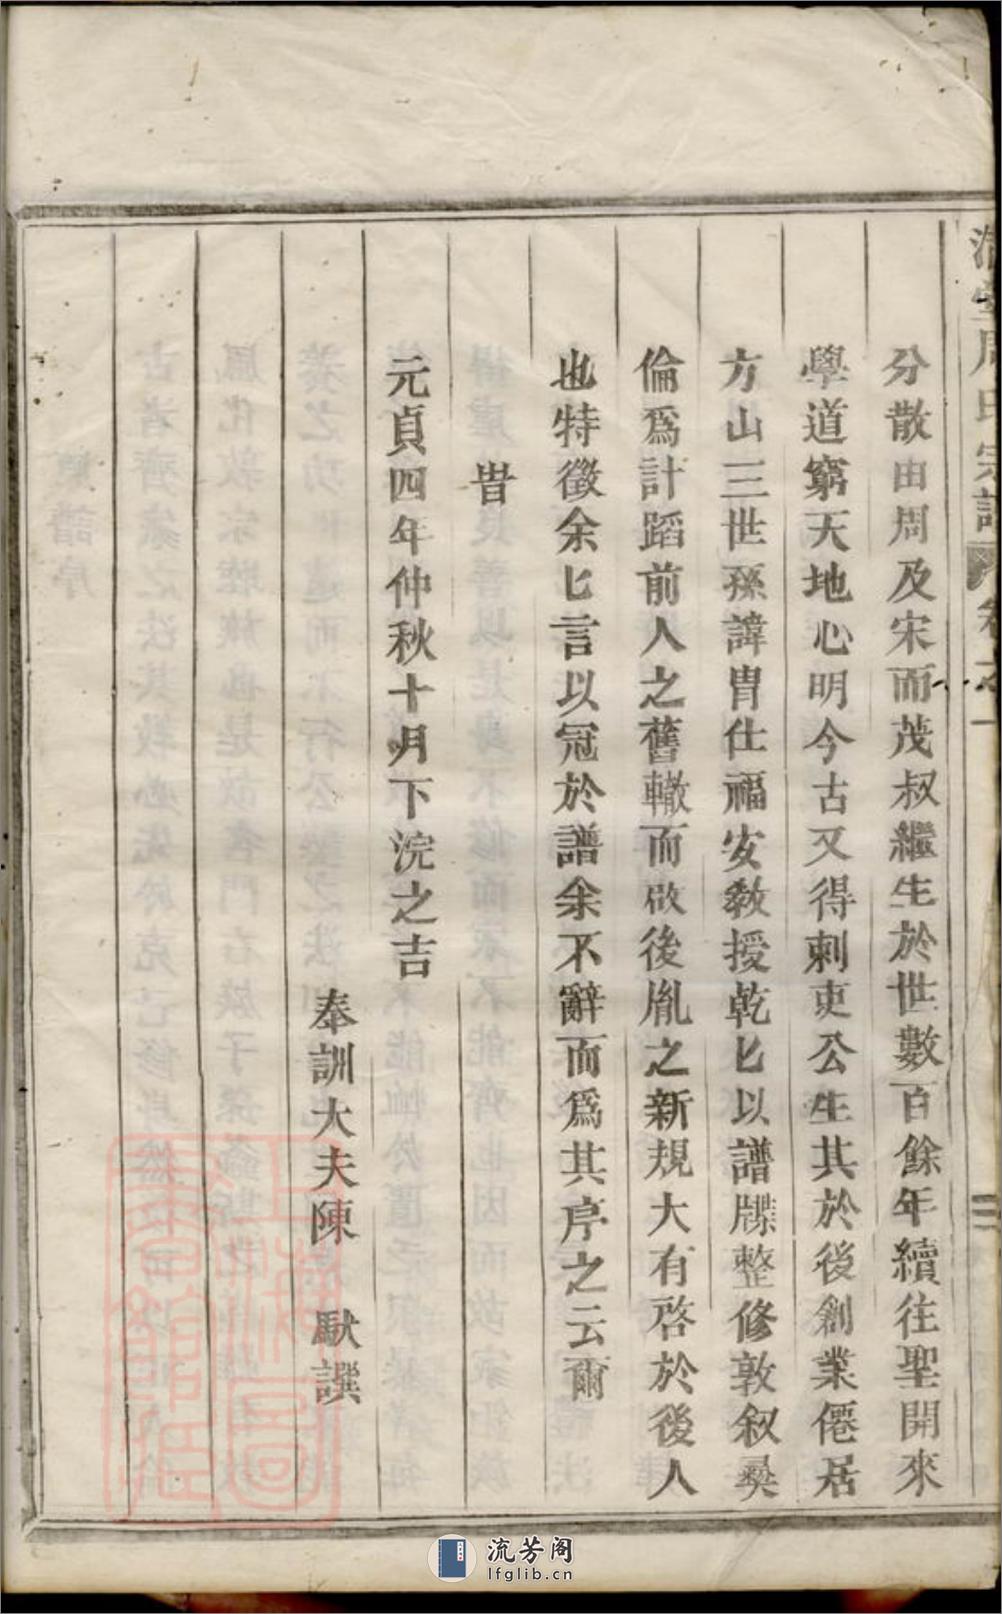 分散由周及宋而茂叔繼生於世數百餘年續往聖開來
學道窮天地心明今古又得刺吏公生其於後創業僊居
方山三世孫諱胄仕福安教授乾匕以譜牒整修敦叙彜
倫爲計蹈前人之舊轍而啟後胤之新規大有啓於後人
也特徵余匕言以冠於譜余不辭而爲其序之云爾
旹
元貞四年仲秋十月下浣之吉
奉訓大夫陳 猷譔
周氏宗譜 卷之一
二
流芳阁
lfglib.cn